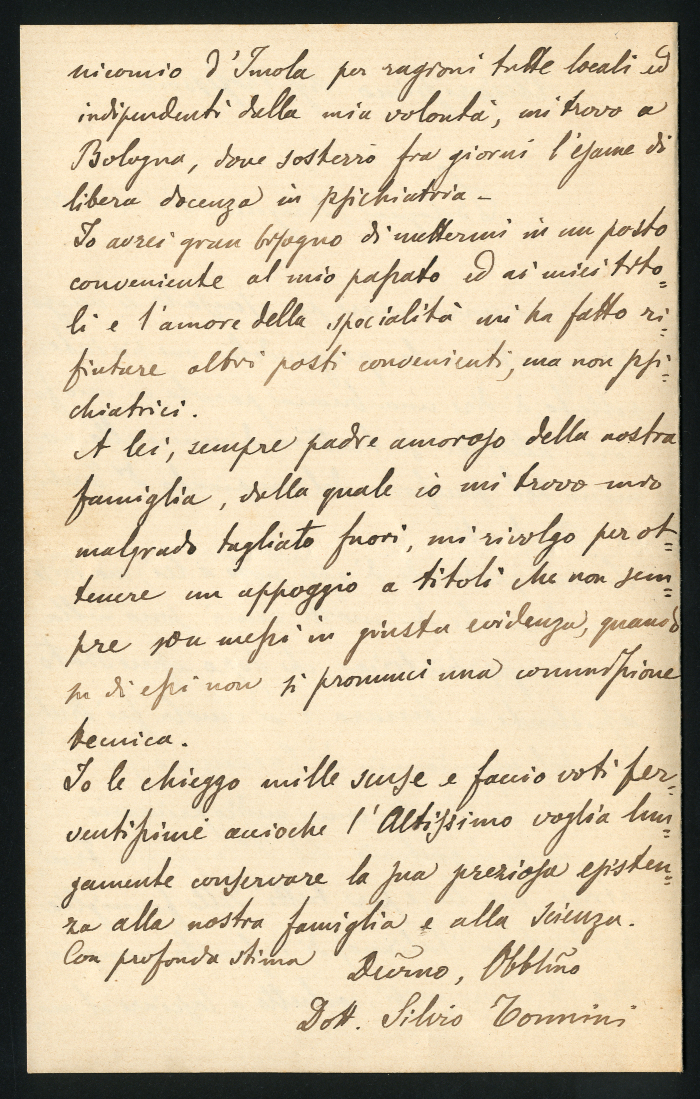 nicomio d'Imola per ragioni tutte locali ed
indipendenti dalla mia volontà, mi trovo a
Bologna, dove sosterrò fra giorni l'esame di
libera docenza in psichiatria -
Io avrei gran bisogno di mettermi in un posto
conveniente al mio passato ed ai miei tito=
li e l'amore della specialità mi ha fatto ri=
fiutare altri posti convenienti, ma non psi=
chiatrici.
A lei, sempre padre amoroso della nostra
famiglia, dalla quale io mi trovo mio
malgrado tagliato fuori, mi rivolgo per ot=
tenere un appoggio a titoli che non sem=
pre son messi in giusta evidenza, quando
su di essi non si pronunci una commissione
tecnica.
Io le chieggo mille scuse e faccio voti fer=
ventissimi acciochè l'Altissimo voglia lun=
gamente conservare la sua preziosa esisten=
za alla nostra famiglia e alla scienza.
Con profonda stima Devmo, Obblmo
Dott. Silvio Tonnini